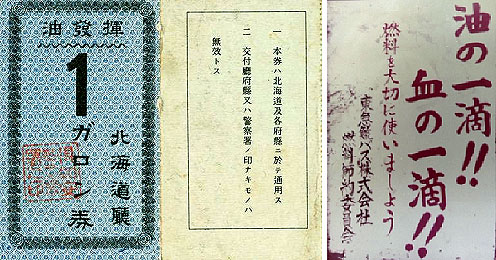 揮發油
1
ガロン券
北海道廳
一 本券ハ北海道及各府縣ニ於テ通用ス
二 交付廳府縣又ハ警察署ノ印ナキモノハ
無效トス
油の一滴!!
血の一滴!!
燃料を大切に使いましよう
東急鯱バス株式会社
燃料節約委員会